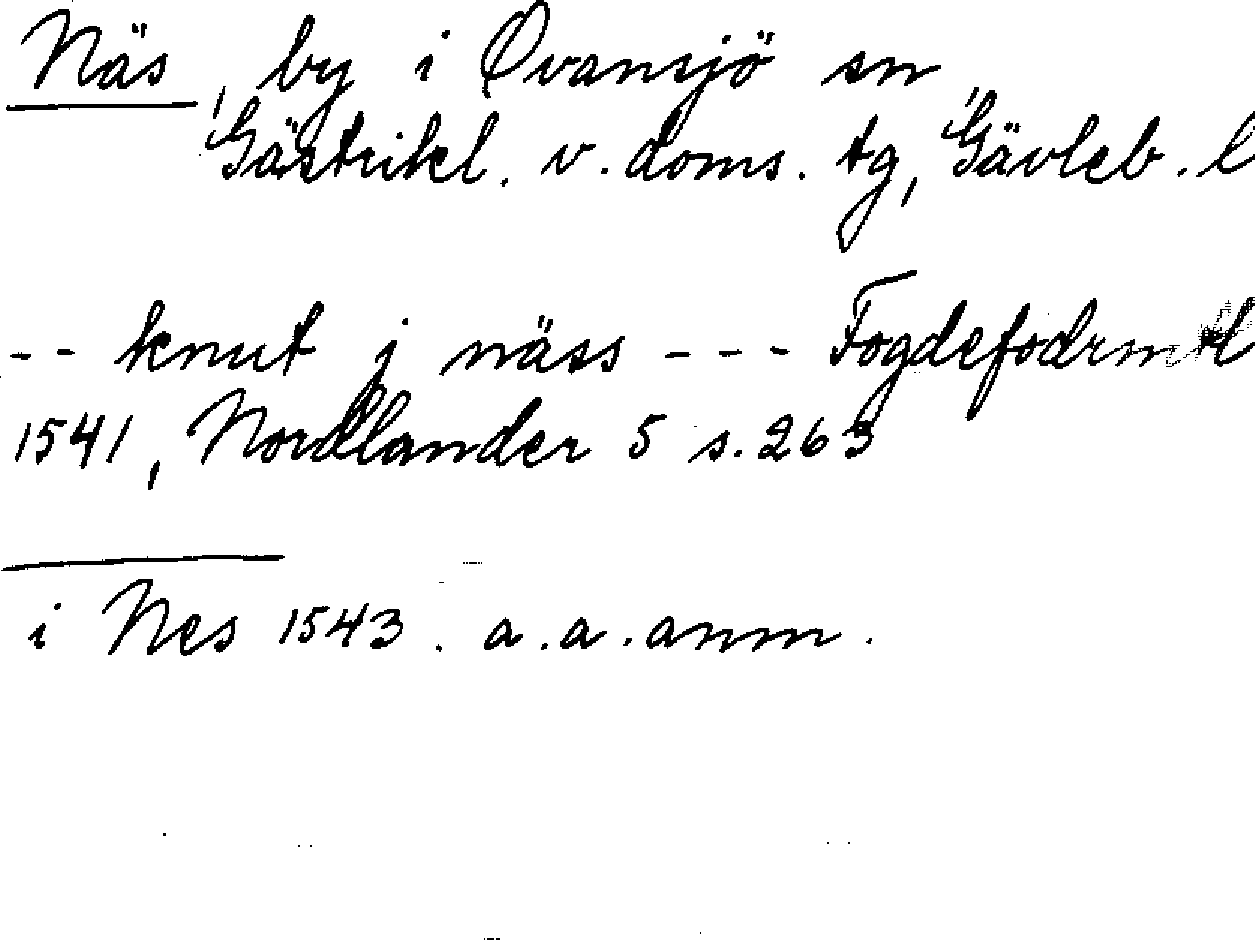 Näs, by i Ovansjö sn,
Gästrikl. v. doms. tg, Gävleb. l
-- knut j näss --- Fogdefodrm
1541, Nordlander 5 s. 263
i Nes 1543. a.a. anm.